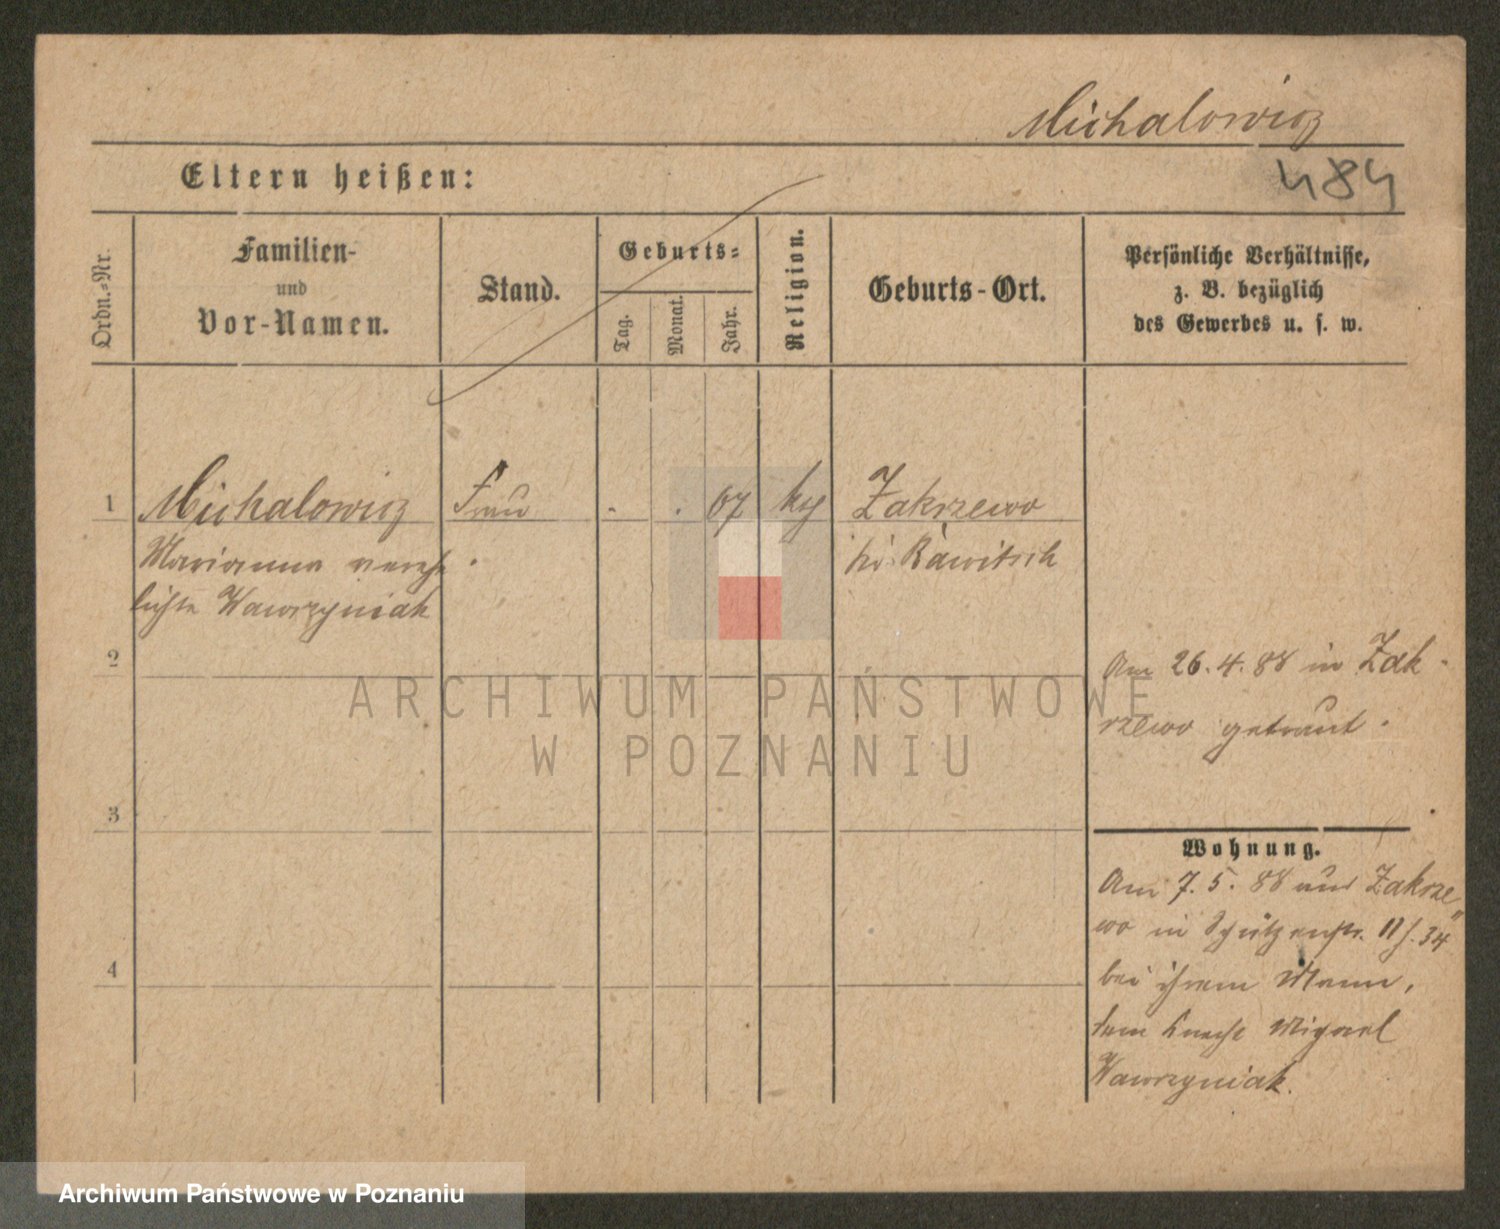 Michalowicz
484
Eltern heißen:
Ordn.-Nr.
Familien-
und
Vor-Namen.
Stand.
Geburts-
Tag.
Monat.
Jahr.
Religion.
Geburts-Ort.
Persönliche Verhältnisse,
z. B. bezüglich
des Gewerbes u. s. w.
1 Michalowicz Frau . . 67 Zakrzewo
Marianna verehe-
lichte Wawrzyniak
Kr. Rawitsch
2
3
4
Am 26.4.88 in Zak-
rzewo getraut.
Wohnung.
Am 7.5.88 aus Zakrze
wo in Schützenstr. 34
bei ihrem Mann,
dem Knecht Michael
Wawrzyniak.
ARCHIWUM PAŃSTWOWE
W POZNANIU
Archiwum Państwowe w Poznaniu